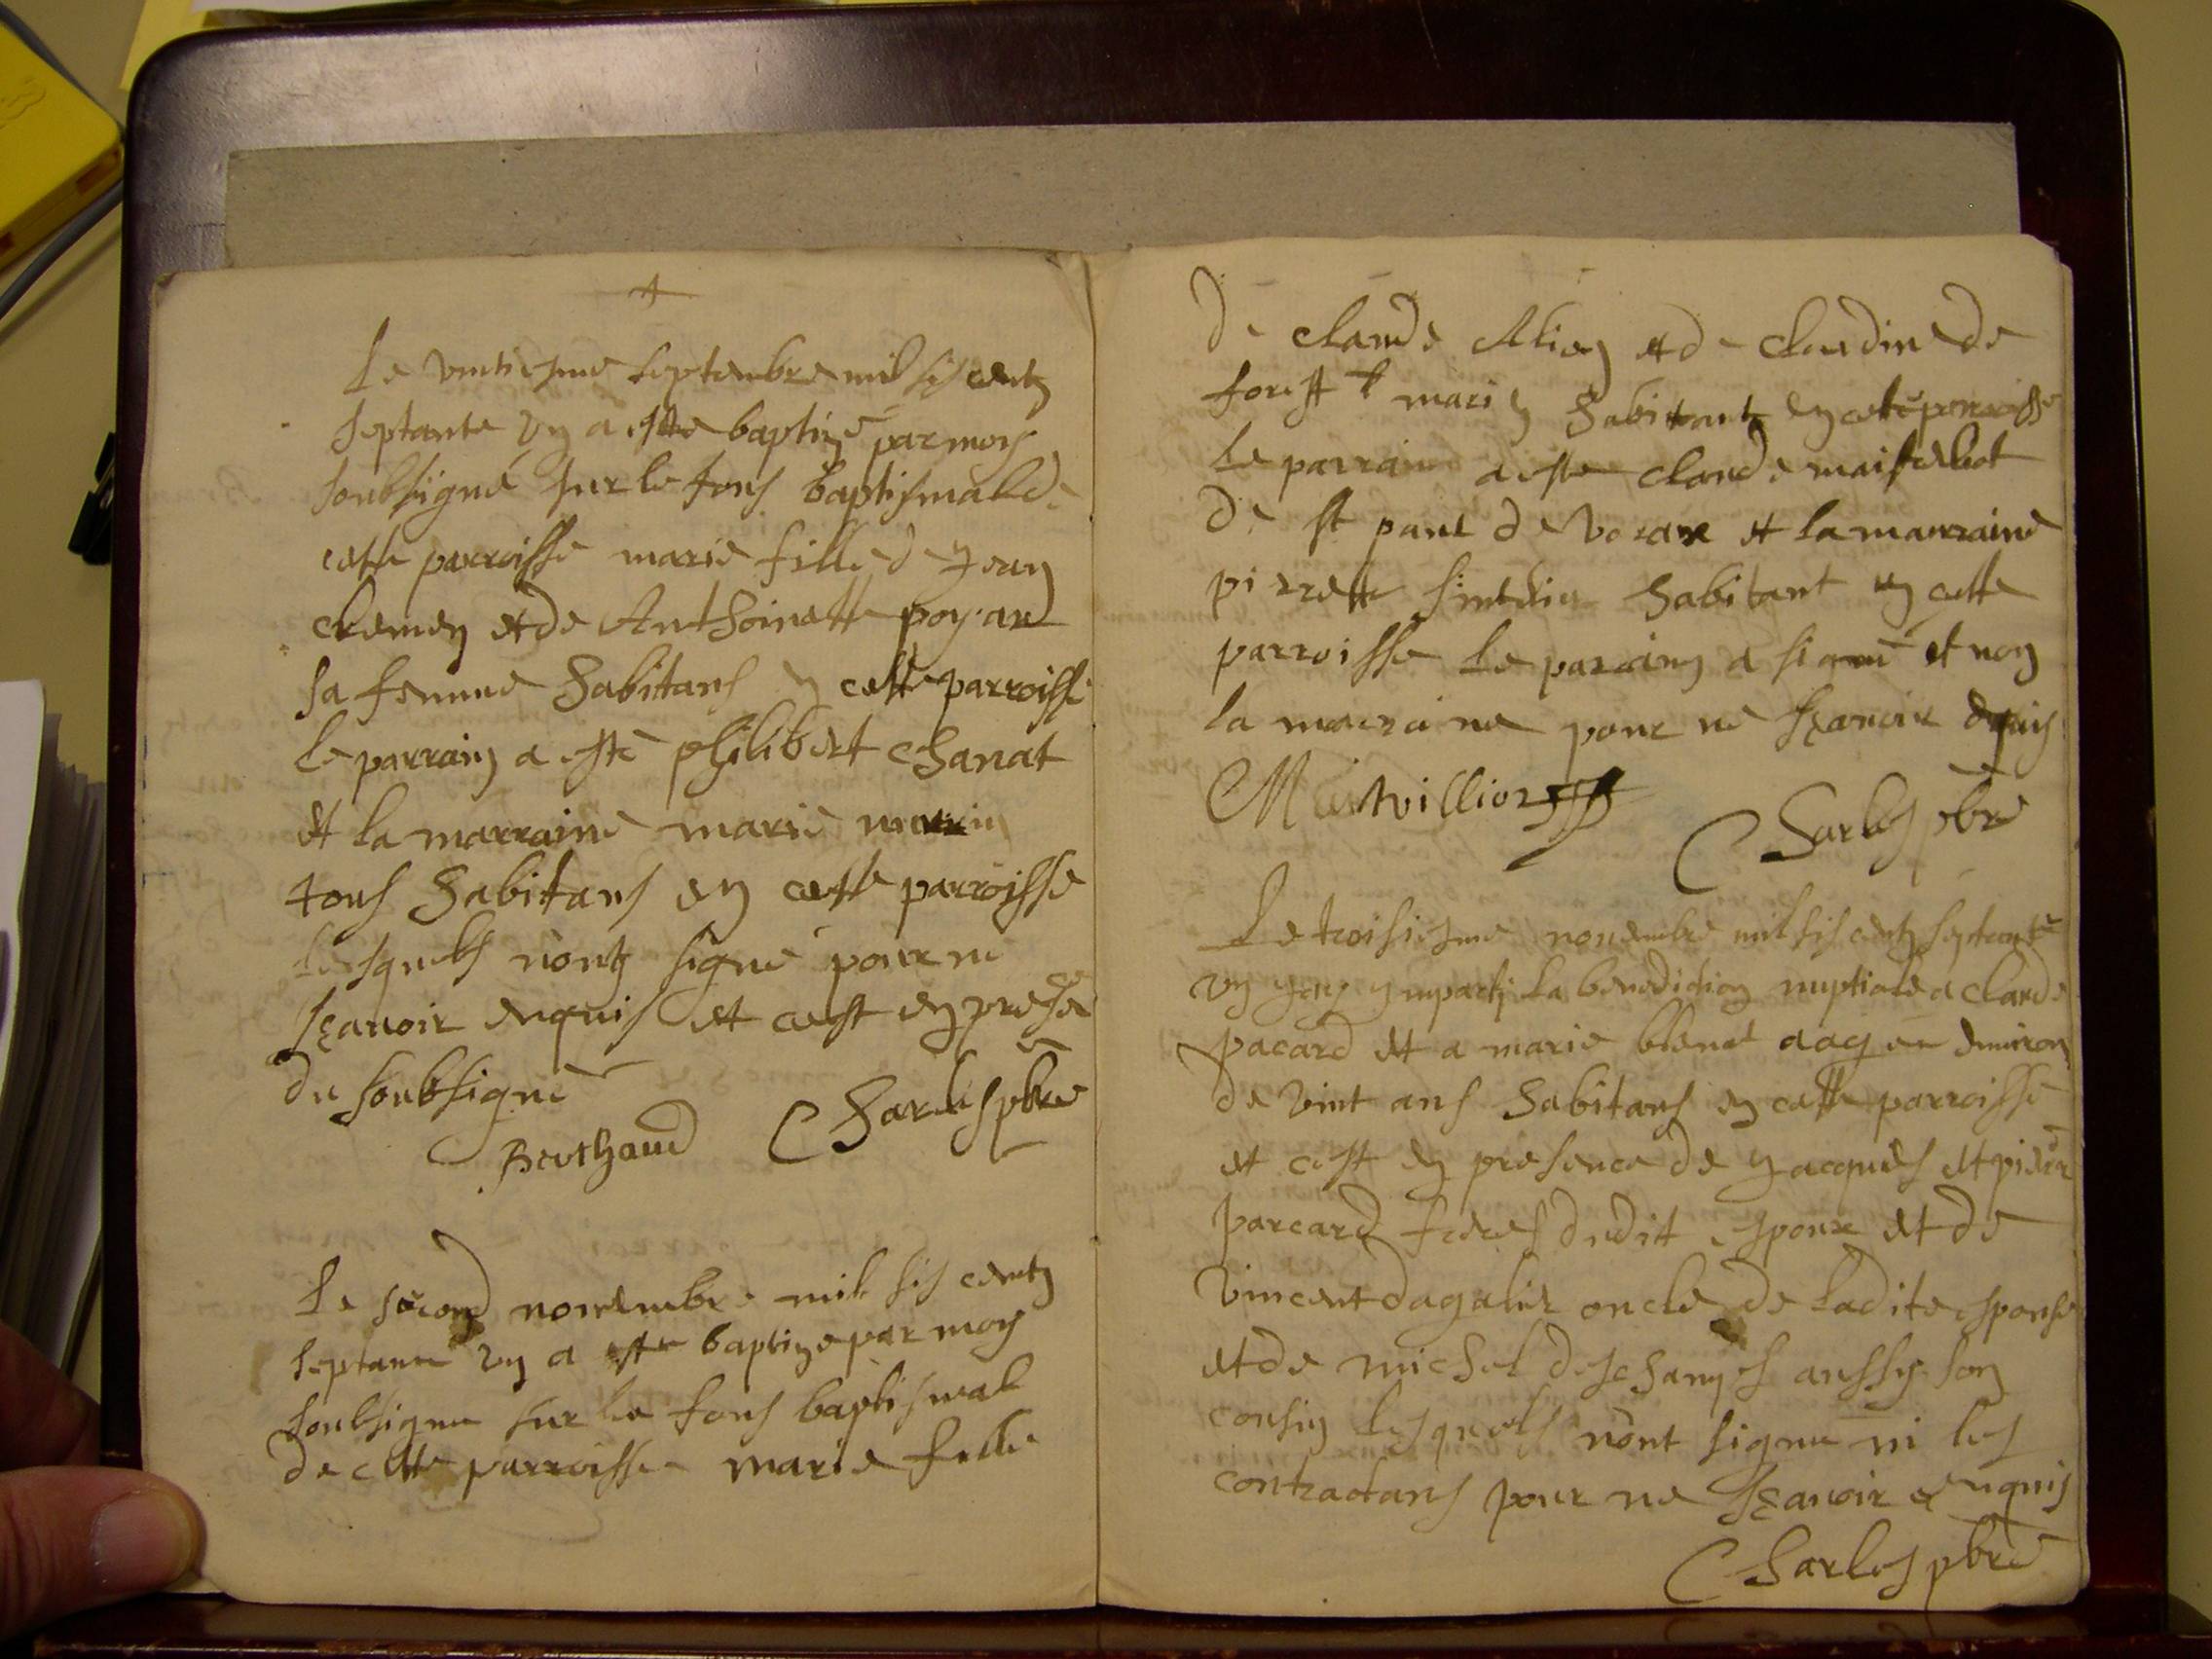 Le vintiesme septembre mil sis centz
septante un a este baptizé par moy
soubsigné sur le fons baptismal de
cette parroisse marie fille de Jean
clemen et de Anthoinette poyard
sa femme habitans en cette parroisse
le parrain a esté philibert chanat
et la marraine marie
tous habitans en cette parroisse
lesquels n'ontz signé pour ne
sçavoir enquis et c'est en presen
du soubsigné
Berthaud Charles pbre
Le second novembre mil sis centz
septante un a este baptize par moy
soubsigne sur le fons baptismal
de cette parroisse marie fille
de claude et de claudine de
forest mariés habitant en cette parroisse
Le parrain a este claude
de st paul de varax et la marraine
pierrette habitant en cette
parroisse le parrain a signé et non
la marraine pour ne sçavoir enquis
Charles pbre
Le troisiesme novembre mil sis centz septante
un j'ay imparti la benediction nuptiale a claude
pacard et a marie blanct aagee environ
de vint ans habitans en cette parroisse
et c'est en presence de jacques et pierre
parcard freres dudit espoux et de
vincent dagalier oncle de ladite espouse
et de michel deschamps aussy son
cousin lesquels n'ont signe ni les
contractans pour ne sçavoir enquis
Charles pbre